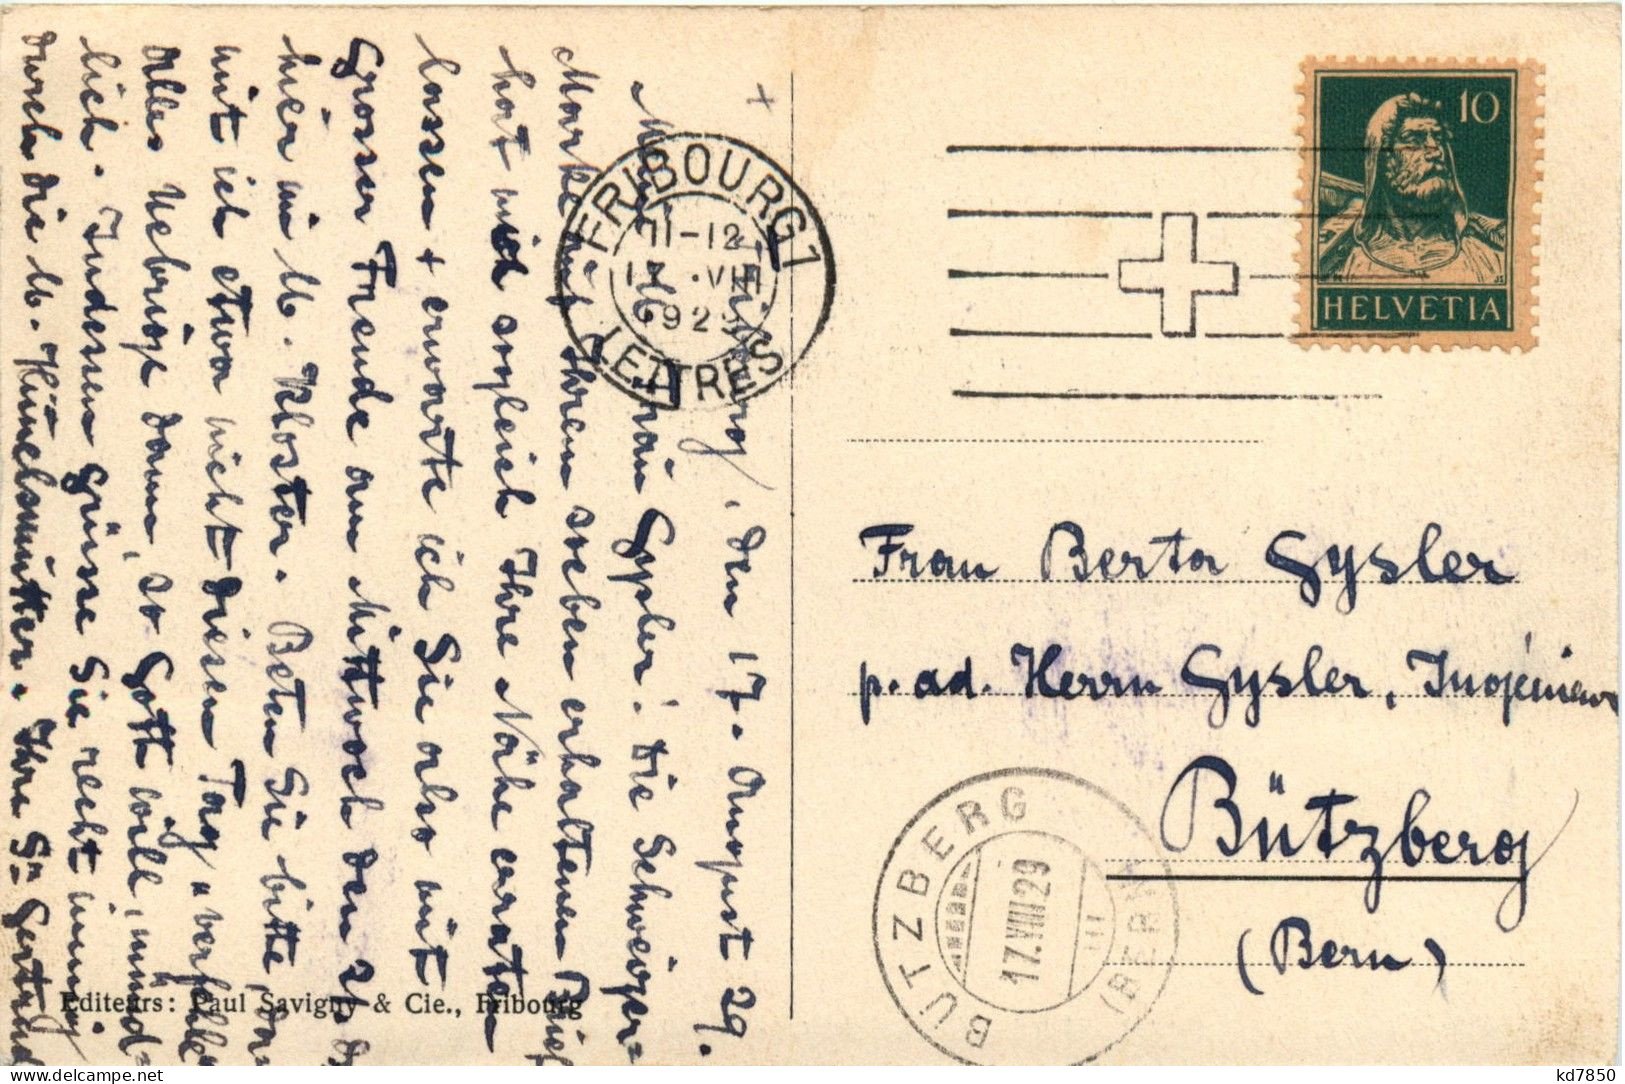 +
Freiburg, den 17. August 29.
Frau Gysler! Die Schweizer-
Marke auf Ihrem soeben erhaltenen Brief
hat mich sogleich Ihre Nähe erraten
lassen + erwarte ich Sie also mit
Grosser Freude am Mittwoch den 21. d
hier in U. Kloster. Beten Sie bitte, da-
mit ich etwa nicht diesen Tag "verfehle
Alles Uebrige dann, so Gott will, münd-
lich. Indessen grüsse Sie recht innig
durch die lb. Himelsmutter. Ihre Sr. Gertrud
Editeurs: Paul Savigny & Cie., Fribourg
FRIBOURG 1
11-12
17.VIII
1929
LETTRES
10
HELVETIA
Frau Berta Gysler
p. ad. Herrn Gysler, Ingénieur
Bützberg
(Bern)
BÜTZBERG
17.VIII 29
(BERN)
kd7850
delcampe.net